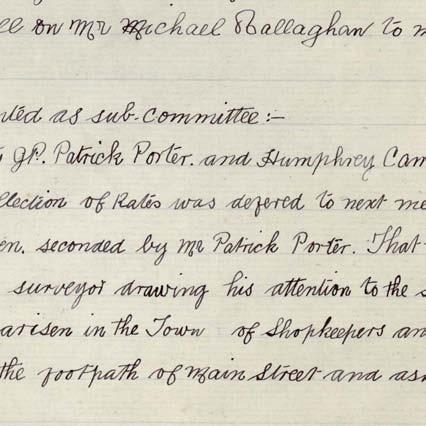 on Mr Michael Rallaghan to
as sub-committee:-
J.P. Patrick Porter. and Humphrey
of Rates was defered to next
seconded by Mr Patrick Porter. That
surveyor drawing his attention to the
arisen in the Town of Shopkeepers an
the footpath of Main Street and as